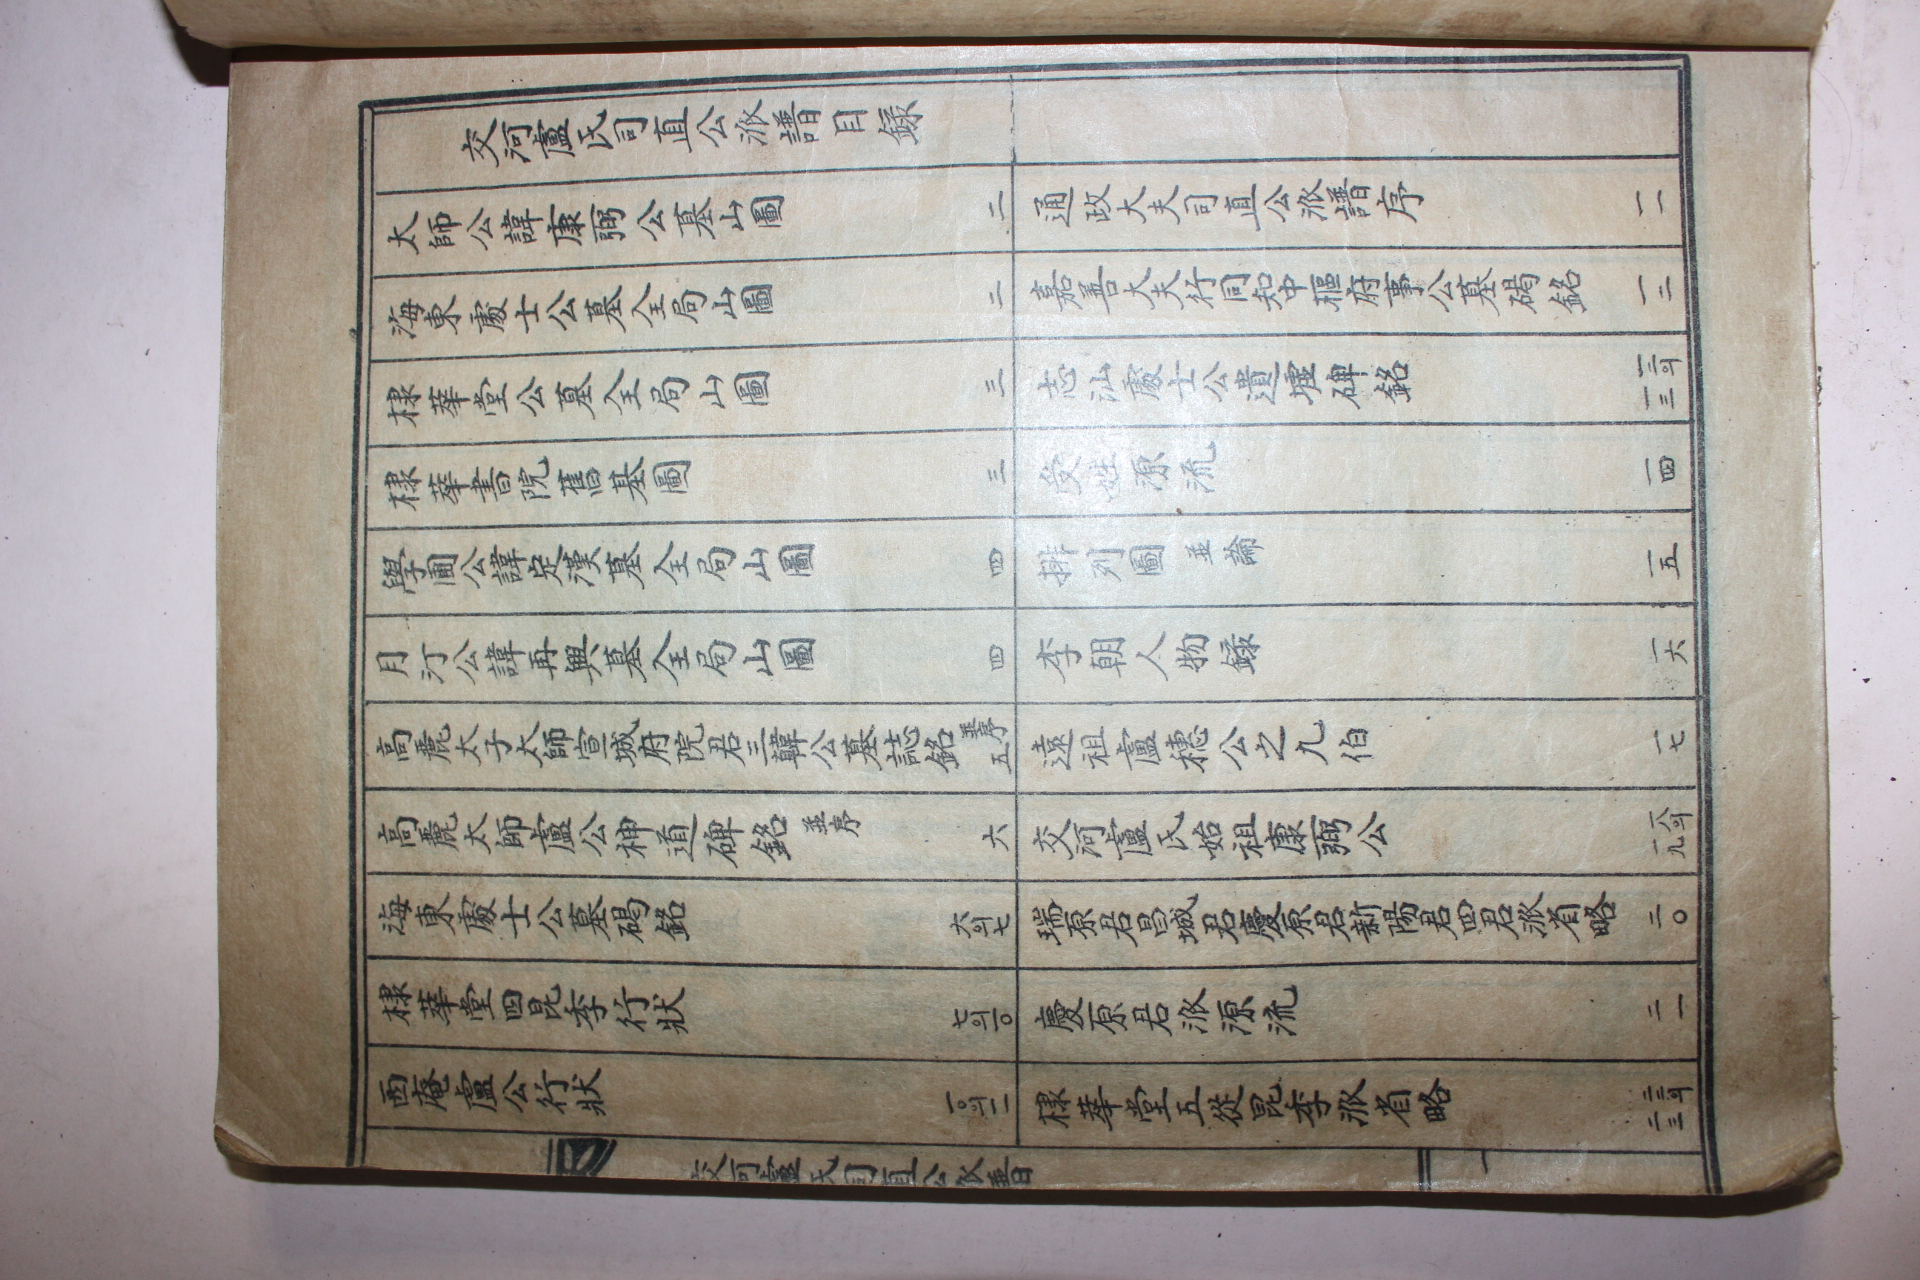 交河盧氏司直公派譜目錄
太師公諱康弼公墓山圖 二
海東處士公墓全局山圖 二
棣華堂公墓全局山圖 三
棣華書院舊基圖 三
學圃公諱定漢墓全局山圖 四
月汀公諱再興墓全局山圖 四
高麗太子太師宣城府院君三韓公墓誌銘 並序 五
高麗太師盧公神道碑銘 並序 六
海東處士公墓碣銘 六의七
棣華堂四昆季行狀 七의一〇
西庵盧公行狀 一〇의一一
通政大夫司直公派譜序 一一
嘉善大夫行同知中樞府事公墓碣銘 一二
志汕處士公遺墟碑銘 一二의一三
受姓源流 一四
排列圖 並論 一五
李朝人物錄 一六
遠祖盧穗公之九伯 一七
交河盧氏始祖康弼公 一八의一九
瑞原君昌城君慶原君新陽君四君派省略 二〇
慶原君派源流 二一
棣華堂五從昆季派省略 二二의二三
交河盧氏司直公派譜
一